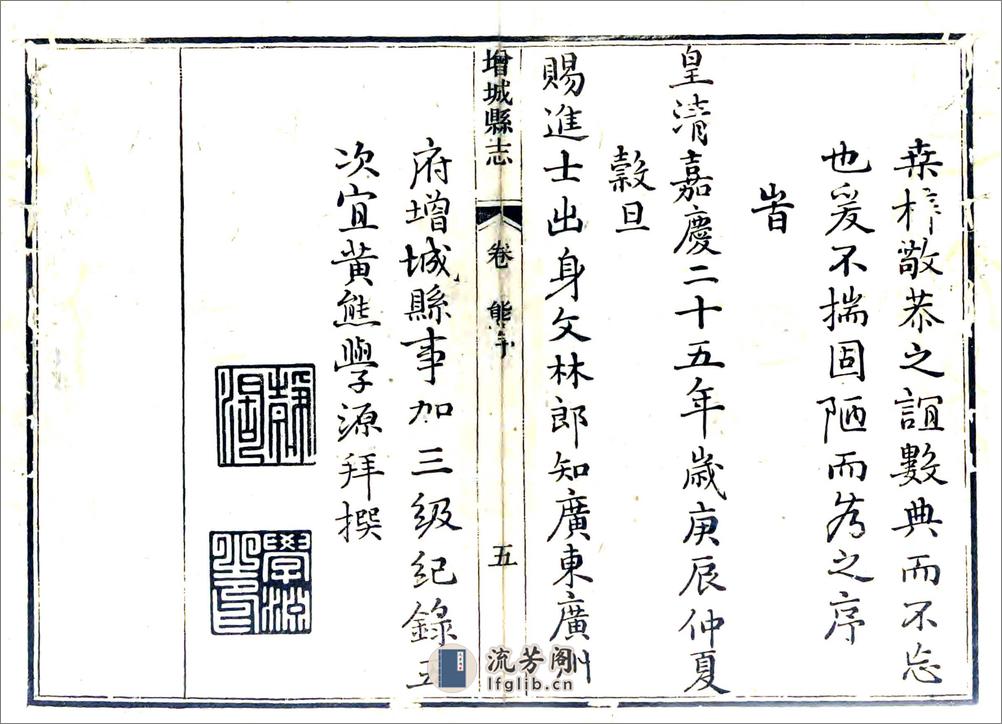 桒梓敬恭之誼數典而不忘
也爰不揣固陋而為之序
旹
皇清嘉慶二十五年歲庚辰仲夏
榖旦
賜進士出身文林郎知廣東廣州
增城縣志
卷
熊序
五
府增城縣事加三級紀錄五
次宜黄熊學源拜撰
學源之印
流芳阁
lfglib.cn